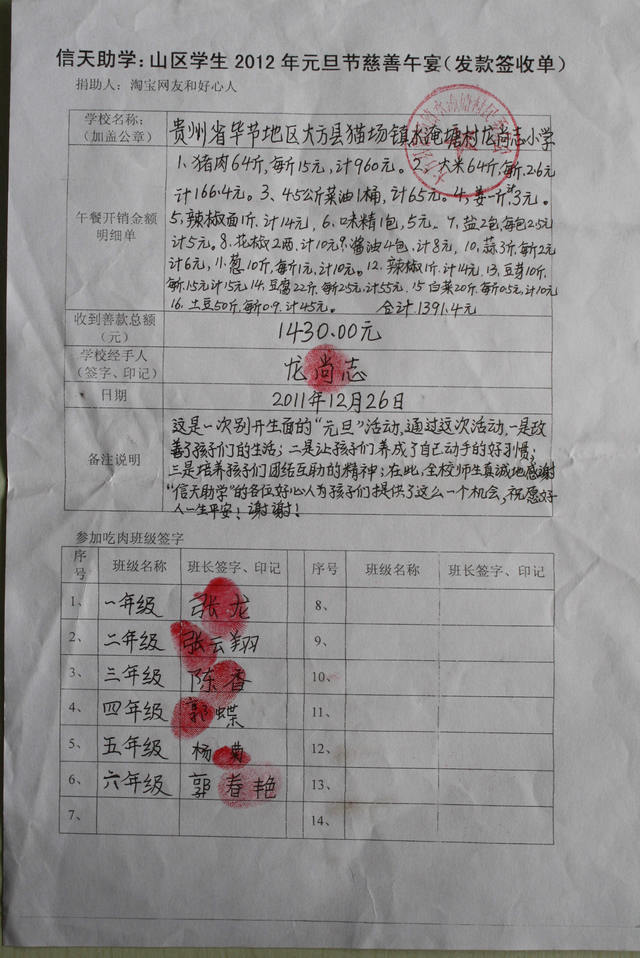 信天助学：山区学生 2012 年元旦节慈善午宴（发款签收单）
捐助人：淘宝网友和好心人
学校名称：
（加盖公章）
贵州省毕节地区大方县猫场镇水淹塘村龙尚志小学
午餐开销金额
明细单
1、猪肉64斤，每斤15元，计960元。2、大米64斤，每斤2.6元
计166.4元。3、45公斤菜油1桶，计65元。4、姜一斤，计3元。
5、辣椒面1斤，计14元，6、味精1包，5元。7、盐2包，每包2.5元
计5元。8、花椒2两，计10元。9、酱油4包，计8元，10、蒜3斤，每斤2元
计6元，11、葱10斤，每斤1元，计10元。12、辣椒1斤，计14元，13、豆芽10斤，
每斤1.5元计15元，14、豆腐22斤，每斤2.5元，计55元，15、白菜20斤，每斤0.5元，计10元
16、土豆50斤，每斤0.9，计45元。 合计1391.4元
收到善款总额
（元）
1430.00元
学校经手人
（签字、印记）
龙尚志
日期
2011年12月26日
备注说明
这是一次别开生面的“元旦”活动，通过这次活动，一是改
善了孩子们的生活；二是让孩子们养成了自己动手的好习惯；
三是培养孩子们团结互助的精神；在此，全校师生真诚地感谢
“信天助学”的各位好心人为孩子们提供了这么一个机会，祝愿好
人一生平安！谢谢！
参加吃肉班级签字
序号 班级名称 班长签字、印记 序号 班级名称 班长签字、印记
1、 一年级 张龙 8、
2、 二年级 张云翔 9、
3、 三年级 陈香 10、
4、 四年级 郭蝶 11、
5、 五年级 杨菊 12、
6、 六年级 郭春艳 13、
7、 14、